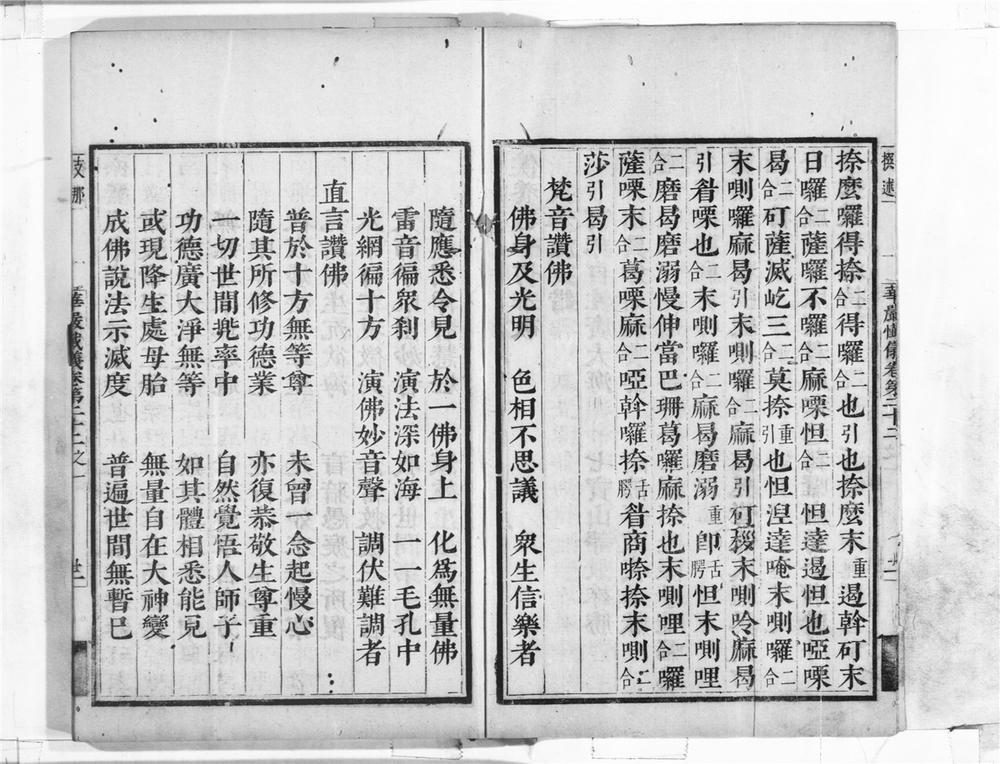 捺麼囉得捺二合得囉二合也引也捺麼末重遏斡矴末
日囉二合薩囉不囉二合麻㗚怛二合怛達遏怛也啞㗚
曷二合矴薩滅屹三二合莫捺重引也怛涅達唵末㘑囉二合
末㘑囉麻曷引末㘑囉二合麻曷引矴椶末㘑呤麻曷
引眢㗚也二合末㘑囉二合麻曷磨溺重卽舌腭怛末㘑哩
二合磨曷磨溺慢伸當巴珊葛囉麻捺也末㘑哩二合囉
薩㗚末二合葛㗚麻二合啞斡囉捺舌腭眢商㗫捺末㘑二合
莎引曷引
梵音讚佛
佛身及光明 色相不思議 衆生信樂者
隨應悉令見 於一佛身上 化爲無量佛
雷音徧衆刹 演法深如海 一一毛孔中
光網徧十方 演佛妙音聲 調伏難調者
直言讚佛
普於十方無等尊 未曾一念起慢心
隨其所修功德業 亦復恭敬生尊重
一切世間兜率中 自然覺悟人師子
功德廣大淨無等 如其體相悉能見
或現降生處母胎 無量自在大神變
成佛說法示滅度 普遍世間無暫已